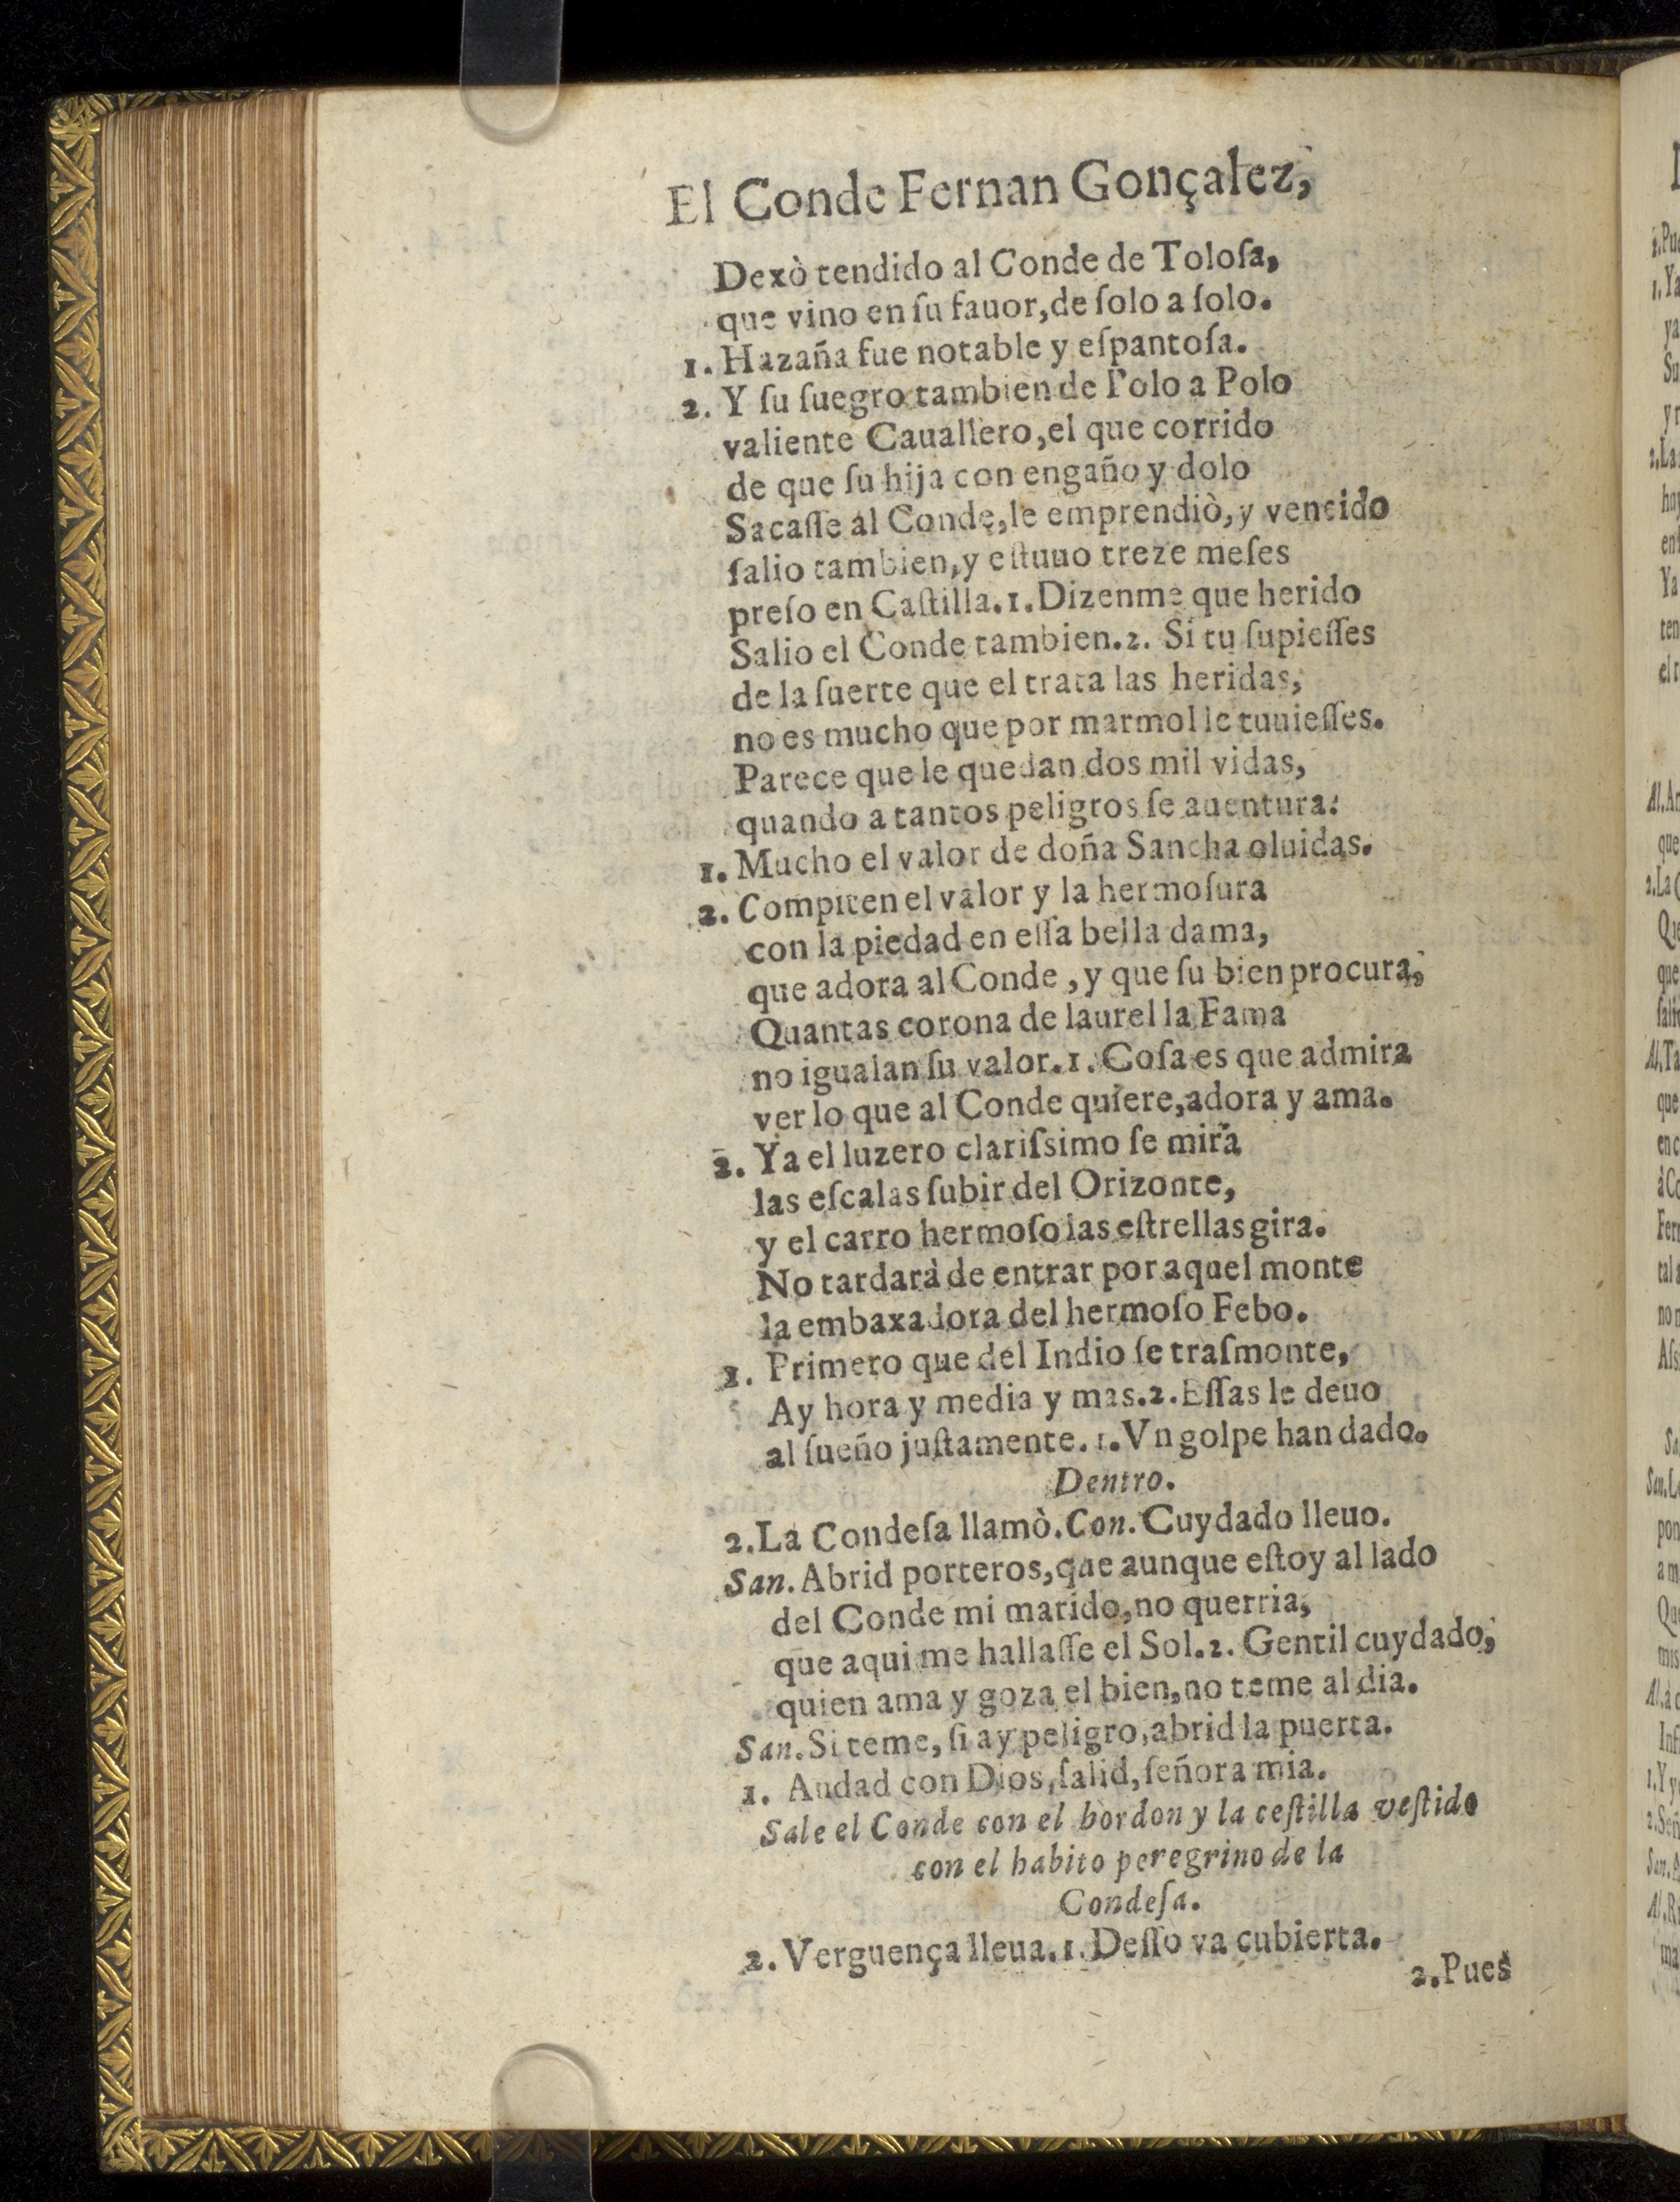 El Conde Fernan Gonçalez,
Dexò tendido al Conde de Toloſa,
que vino en ſu fauor, de ſolo a ſolo.
1. Hazaña fue notable y eſpantoſa.
2. Y ſu ſuegro tambien de Polo a Polo
valiente Cauallero, el que corrido
de que ſu hija con engaño y dolo
Sacaſſe al Conde, le emprendiò, y vencido
ſalio tambien, y eſtuuo treze meſes
preſo en Caſtilla. 1. Dizenme que herido
Salio el Conde tambien. 2. Si tu ſupieſſes
de la ſuerte que el trata las heridas,
no es mucho que por marmol le tuuieſſes.
Parece que le quedan dos mil vidas,
quando a tantos peligros ſe auentura.
1. Mucho el valor de doña Sancha oluidas.
2. Compiten el valor y la hermoſura
con la piedad en eſſa bella dama,
que adora al Conde, y que ſu bien procura,
Quantas corona de laurel la Fama
no igualan ſu valor. 1. Coſa es que admira
ver lo que al Conde quiere, adora y ama.
2. Ya el luzero clariſsimo ſe mira
las eſcalas ſubir del Orizonte,
y el carro hermoſo las eſtrellas gira.
No tardarà de entrar por aquel monte
la embaxadora del hermoſo Febo.
1. Primero que del Indio ſe traſmonte,
Ay hora y media y mas. 2. Eſſas le deuo
al ſueño juſtamente. 1. Vn golpe han dado.
Dentro.
2. La Condeſa llamò. Con. Cuydado lleuo.
San. Abrid porteros, que aunque eſtoy al lado
del Conde mi marido, no querria,
que aqui me hallaſſe el Sol. 2. Gentil cuydado,
quien ama y goza el bien, no teme al dia.
San. Si teme, ſi ay peligro, abrid la puerta.
1. Andad con Dios, ſalid, ſeñora mia.
Sale el Conde con el bordon y la ceſtilla veſtido
con el habito peregrino de la
Condeſa.
2. Verguença lleua. 1. Deſſo va cubierta.
2. Pues